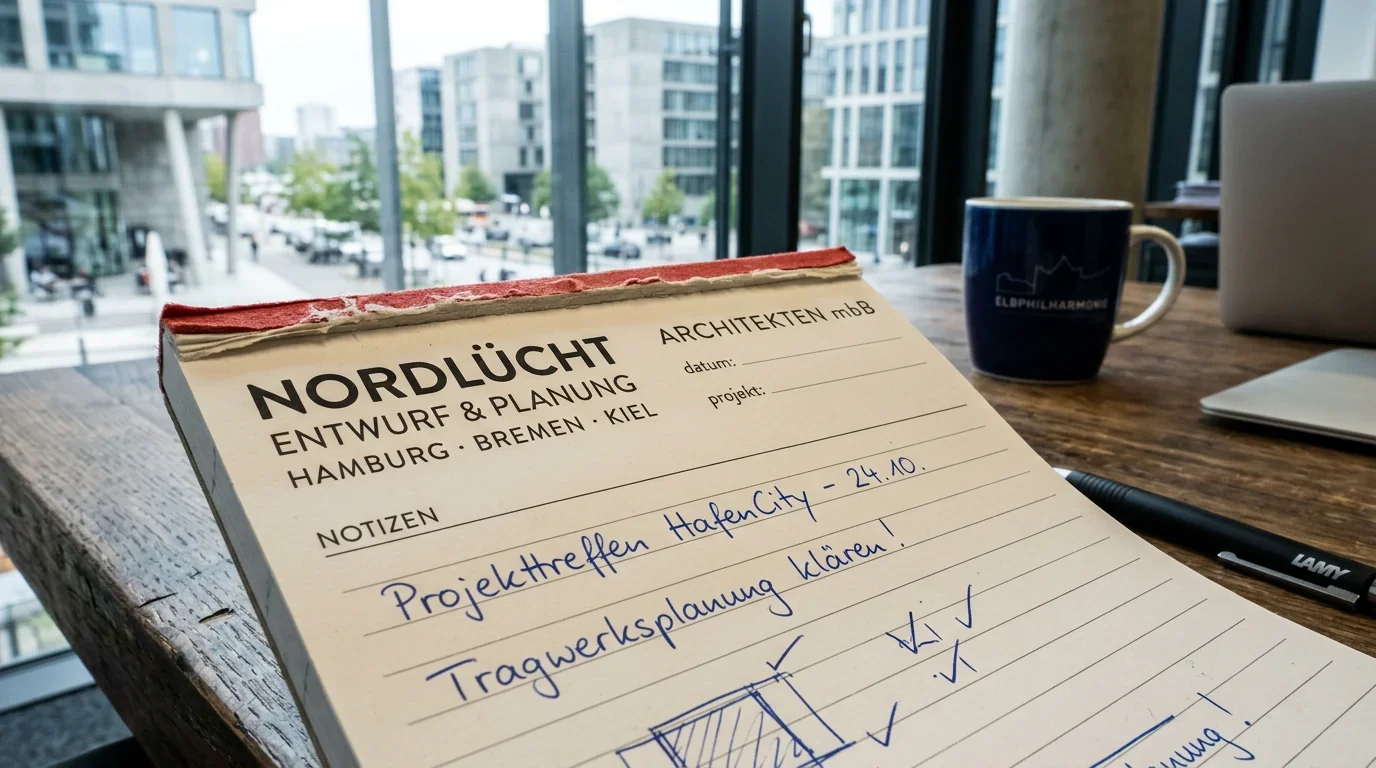 NORDLÜCHT
ENTWURF & PLANUNG
HAMBURG · BREMEN · KIEL
ARCHITEKTEN mbB
datum:
projekt:
NOTIZEN
Projekttreffen HafenCity – 24.10.
Tragwerksplanung klären!
ELBPHILHARMONIE
LAMY